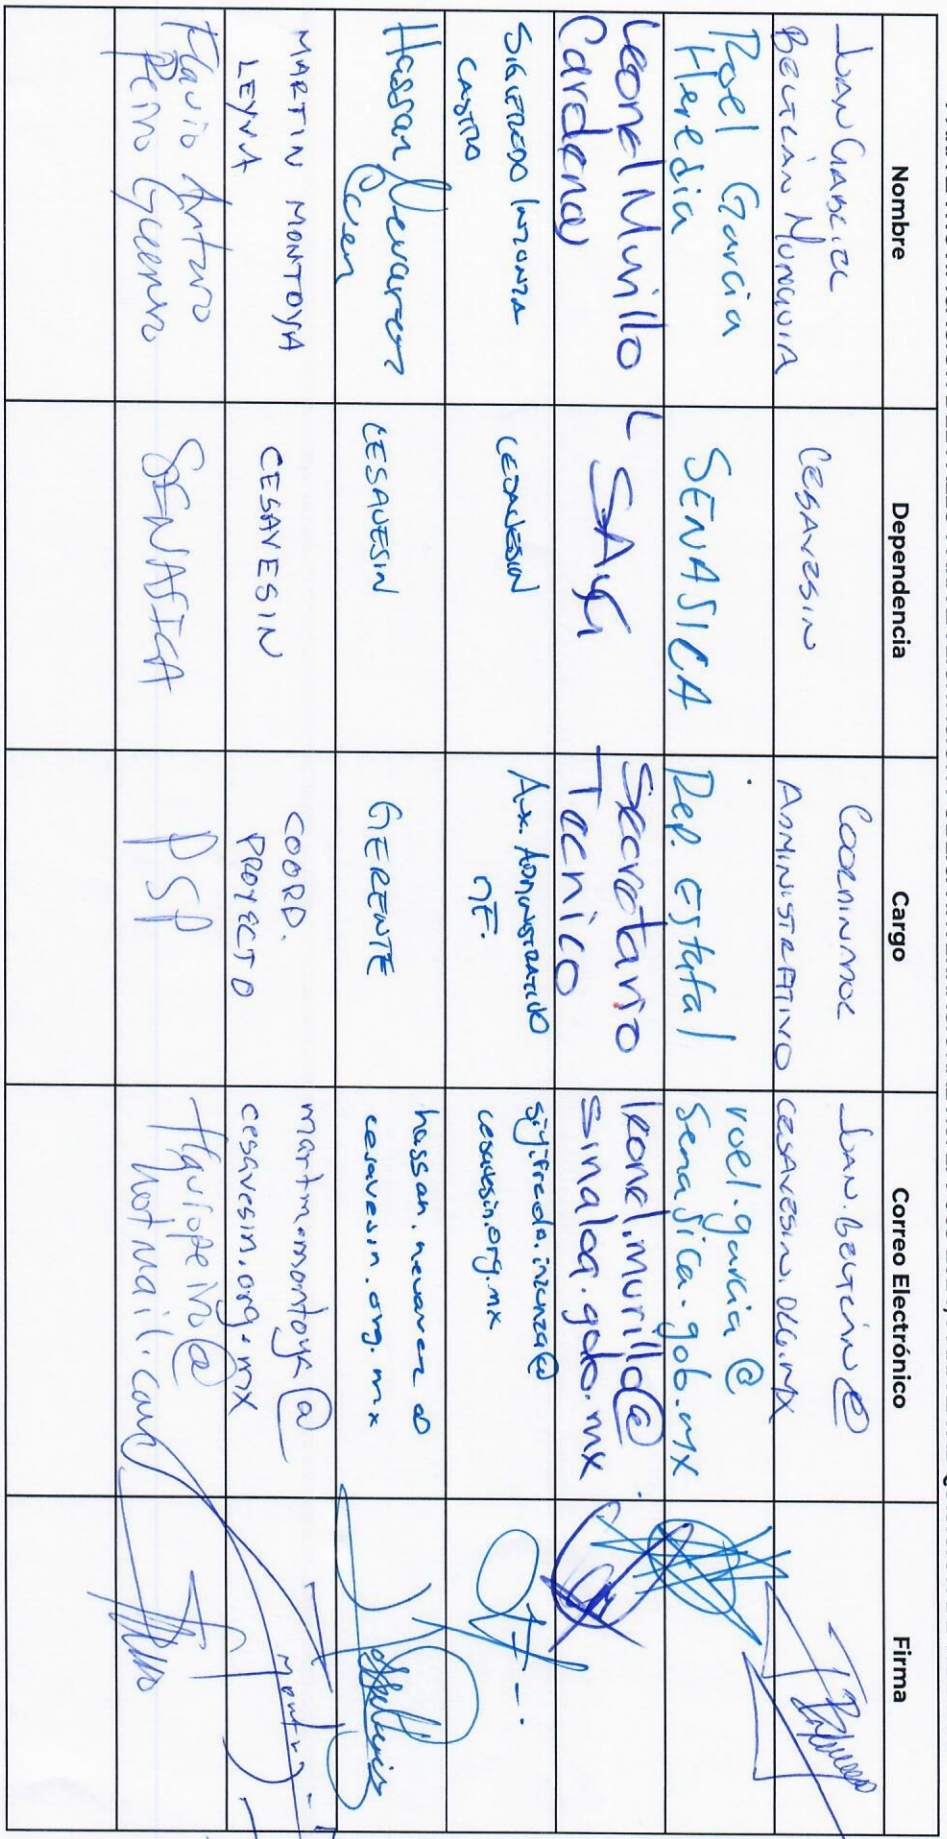 Nombre Dependencia Cargo Correo Electrónico Firma
JUAN GABRIEL
BELTRÁN MUNGUIA
CESAVESIN
COORDINADOR
ADMINISTRATIVO
JUAN.BELTRÁN@
CESAVESIN.ORG.MX
Roel García
Heredia
SENASICA
Rep. Estatal
roel.garcia@
senasica.gob.mx
Leonel Murillo
Cardenas
SAyG
Secretario
Tecnico
leonel.murillo@
sinaloa.gob.mx
SIGIFREDO INZUNZA
CASTRO
CESAVESIN
Aux. ADMINISTRATIVO
sigifredo.inzunza@
cesavesin.org.mx
Hassan Nevarez
Cuen
CESAVESIN
GERENTE
hassan.nevarez@
cesavesin.org.mx
MARTIN MONTOYA
LEYVA
CESAVESIN
COORD.
PROYECTO
martin.montoya@
cesavesin.org.mx
Montoya
Flavio Arturo
Peiro Guerrero
SENASICA
PSP
flaviopeiro@
hotmail.com